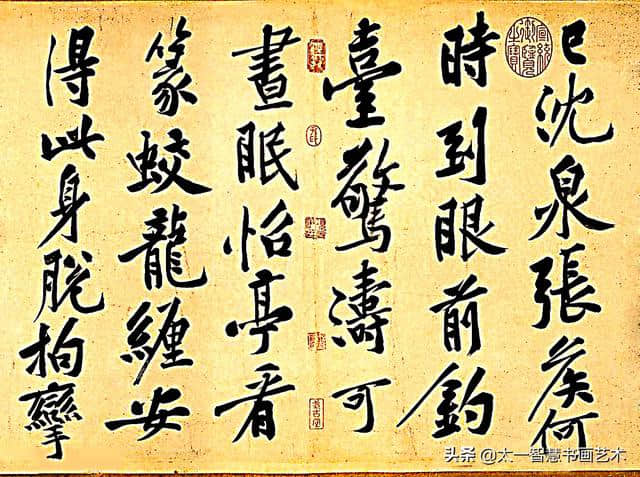 已沈泉張侯何
時到眼前釣
臺驚濤可
晝眠怡亭看
篆蛟龍纏安
得此身脫拘攣
宣統御覽之寶
头条 @太一智慧书画艺术